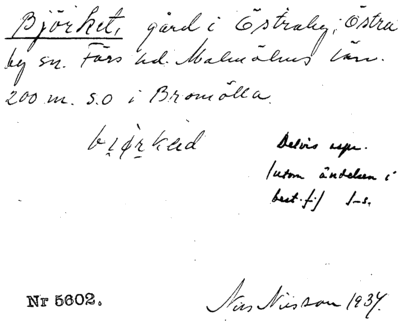 Björket, gård i Östraby, Östra
by sn. Färs hd. Malmöhus län.
200 m. S.O i Bromölla.
Delvis upr.
(utom ändelsen i
best. f.) J-s.
Nr 5602.
Nils Nilsson 1934.